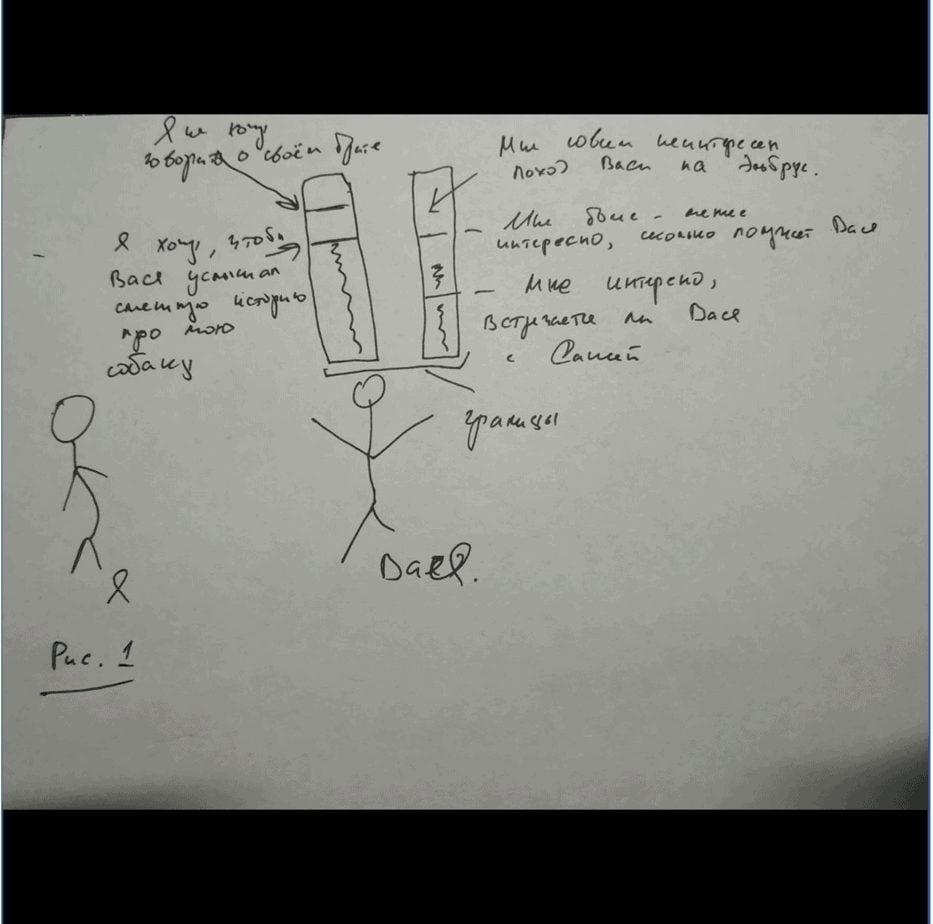 Я не хочу
говорить о своём брате
Мне совсем неинтересен
поход Васи на Эльбрус.
Я хочу, чтобы
Вася услышал
смешную историю
про мою
собаку
Мне более-менее
интересно, сколько получает Вася
Мне интересно,
встречается ли Вася
с Сашей
границы
Я
Вася.
Рис. 1